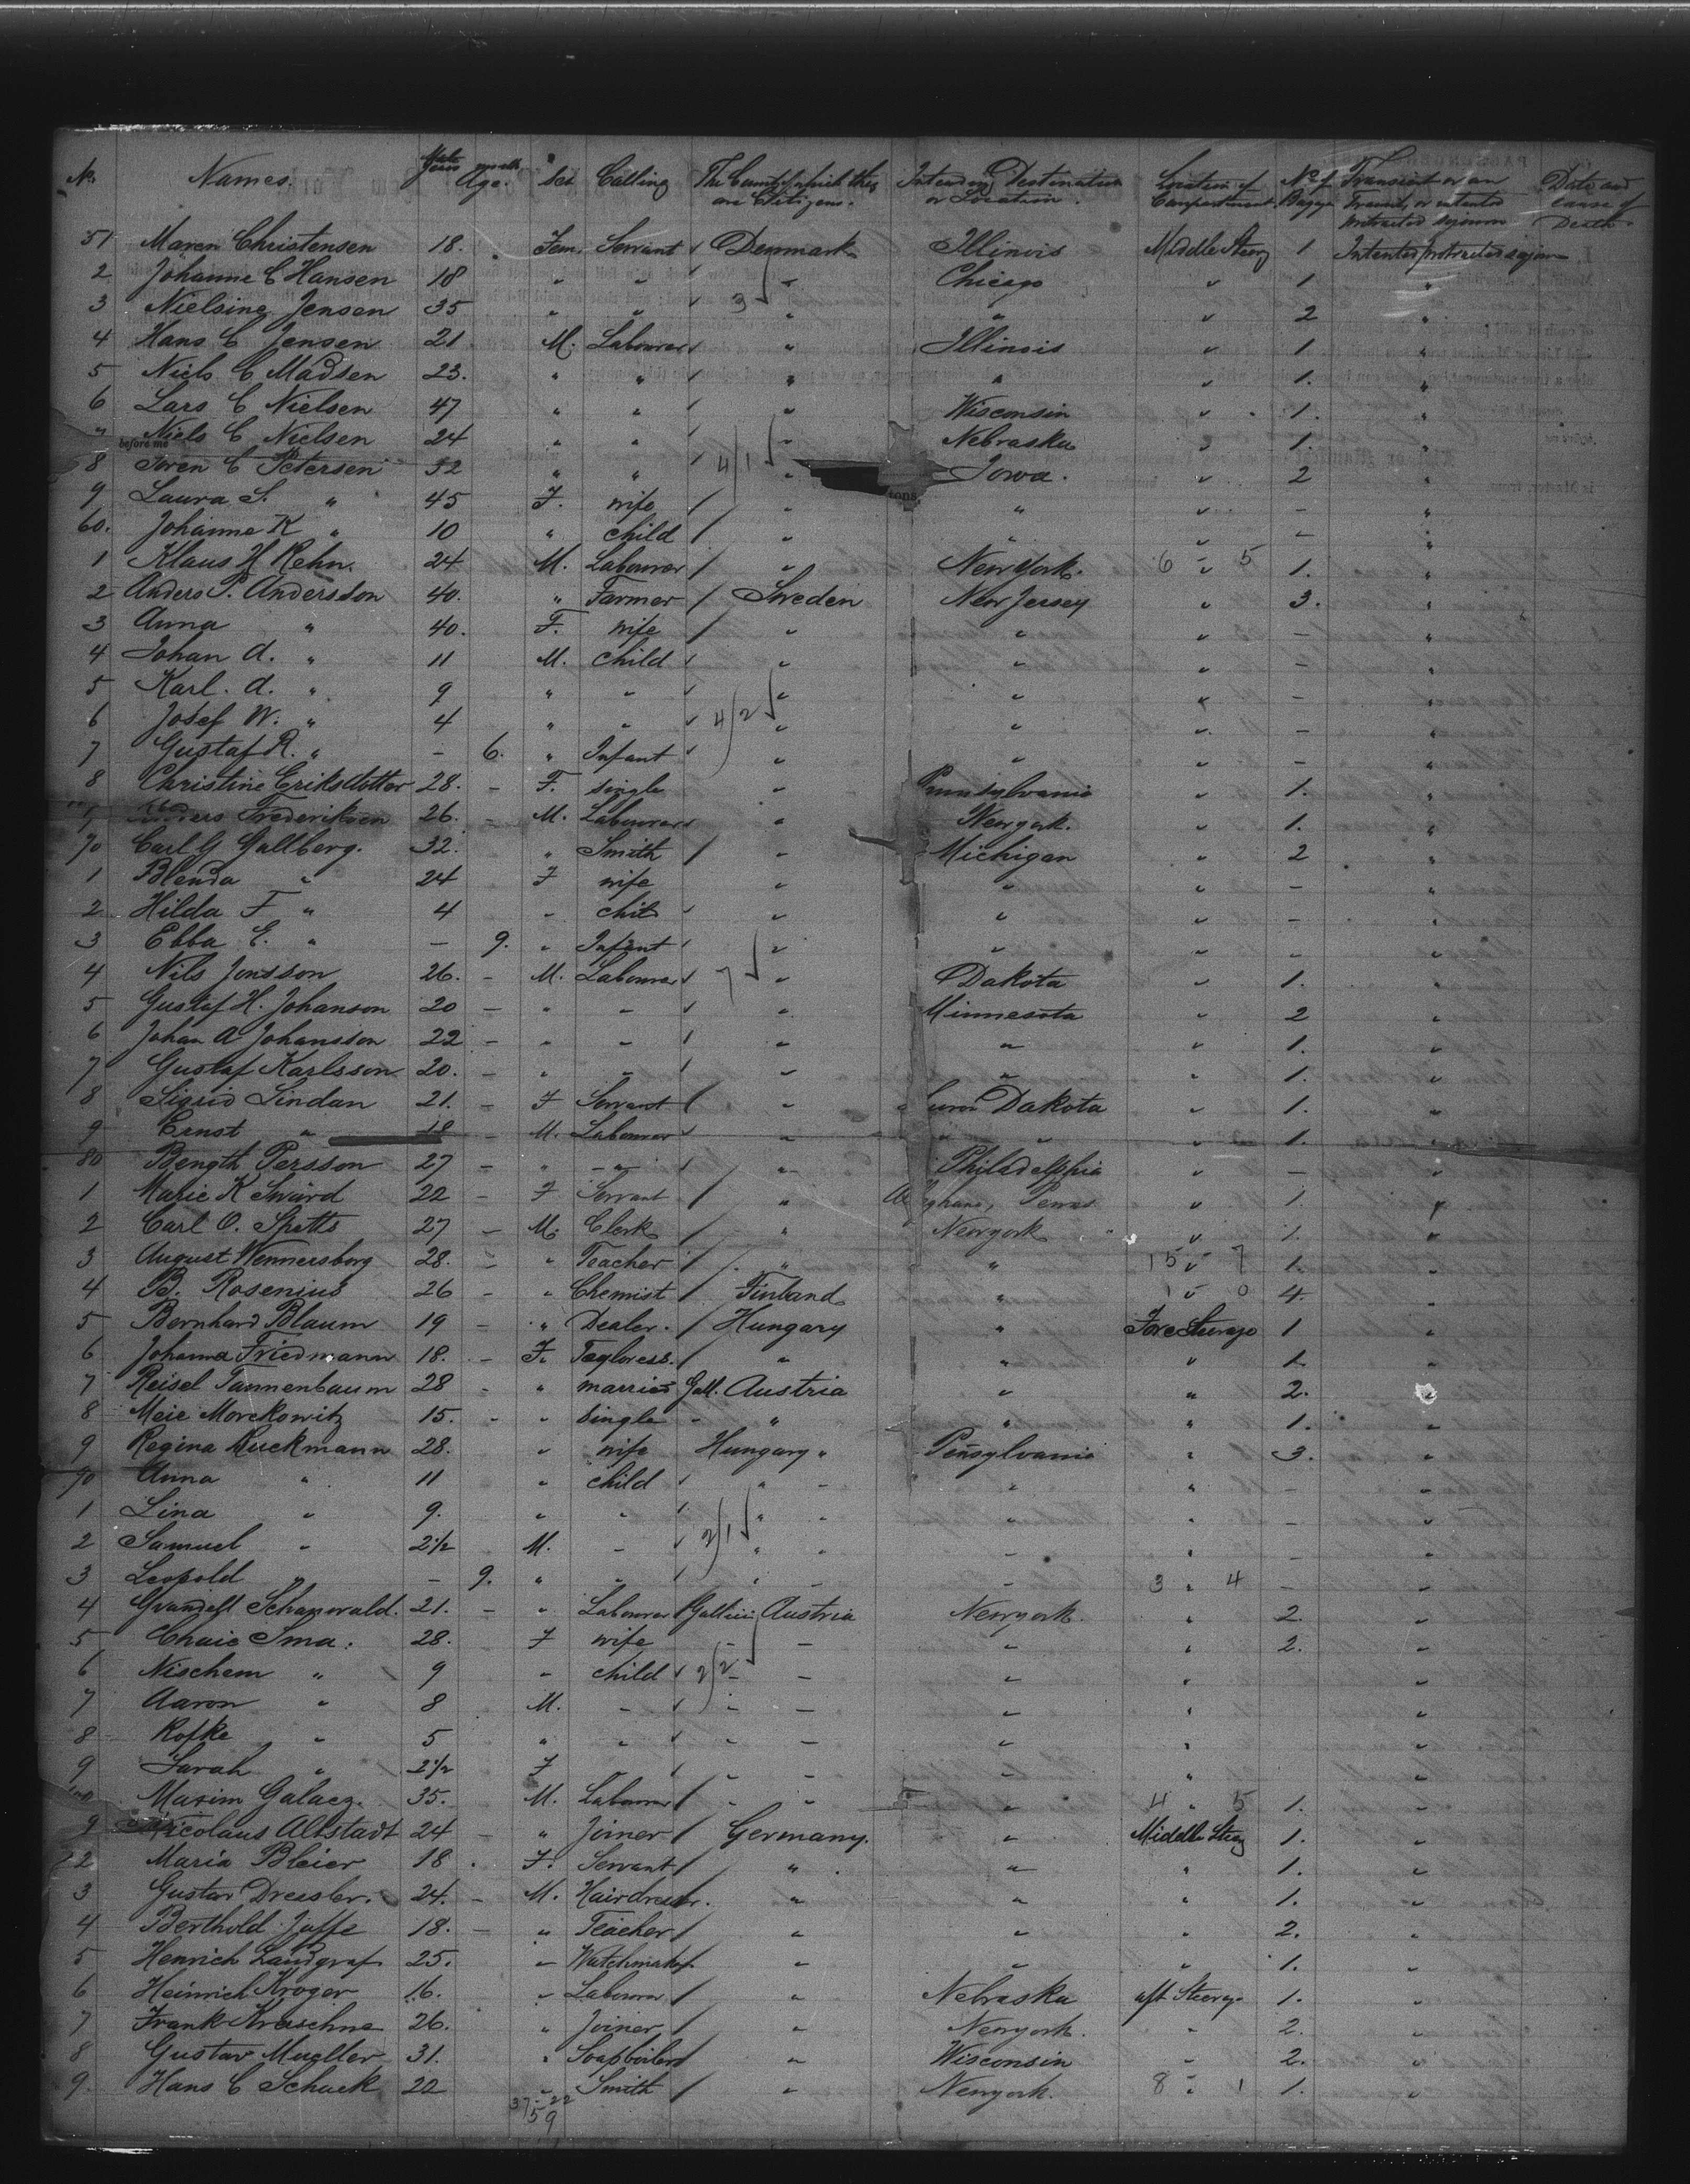 No. Names. Years months Age. Sex Calling The Country of which they are Citizens. Intended Destination or Location. Location of Compartment. No of Bagge Transient or in Transit, or intended protracted sojourn Date and cause of Death.
51 Maren Christensen 18. Fem. Servant Denmark Illinois Middle Steerg 1 Intented protracted sojourn
2 Johanne C Hansen 18 " " " Chicago " 1 "
3 Nielsine Jensen 35 " " " " " 2 "
4 Hans C Jensen 21 M. Labourer " Illinois " 1 "
5 Niels C Madsen 23. " " " " " 1. "
6 Lars C Nielsen 47 " " " Wisconsin " 1. "
" Niels C Nielsen 24 " " " Nebraska " 1 "
before me
8 Soren C Petersen 32 " " " Iowa. " 2 "
9 Laura S. " 45 F. wife " " " - "
60. Johanne K " 10 " child " " " - "
1 Klaus H Rehn. 24 M. Labourer " New York. 6 " 5 1. "
2 Anders P. Andersson 40. " Farmer Sweden New Jersey " 3. "
3 Anna " 40. F. wife " " " - "
4 Johan A. " 11 M. child " " " - "
5 Karl. A. " 9 " " " " " - "
6 Josef W. " 4 " " " " " - "
7 Gustaf R. " - 6. " Infant " " " - "
8 Christine Eriksdotter 28. - F. single " Pennsylvania " 1. "
Anders Frederiksen 26. - M. Labourer " New york. " 1. "
70 Carl G Gallberg. 32. " Smith " Michigan " 2 "
1 Blenda " 24 F wife " " " - "
2 Hilda F " 4 " chil " " " - "
3 Ebba E. " - 9. " Infant " " " " "
4 Nils Jonsson 26. - M. Labourer " Dakota " 1. "
5 Gustaf H. Johanson 20 - " " " Minnesota " 2 "
6 Johan A Johansson 22 - " " " " " 1. "
7 Gustaf Karlsson 20. - " " " " " 1. "
8 Sigrid Lindan 21. - F Servant " Dakota " 1. "
9 Ernst " 18 - M. Labourer " " " 1. "
80 Bength Persson 27 - " " " Philadelphia " - "
1 Marie K Swärd 22 - F Servant " " 1. "
2 Carl O. Spetts 27 - M. Clerk " New york " 1. "
3 August Wennersborg 28. - " Teacher " " 15 " 7 1. "
4 B. Rosenius 26 - " Chemist Finland " 1 " 0 4. "
5 Bernhard Blaum 19 - " Dealer. Hungary " Fore Steerage 1 "
6 Johanna Friedmann 18. - F. Tayloress. " " " 1. "
7 Reisel Tannenbaum 28 - " married Gall. Austria " " 2. "
8 Meie Morckowitz 15. - " single - " " " 1. "
9 Regina Ruckmann 28. " wife Hungary " Pensylvania " 3. "
90 Anna " 11 " child " " " - "
1 Lina " 9. " " " " " - "
2 Samuel " 2½ M. " " " " - "
3 Leopold " - 9. " " " " 3 " 4 - "
4 Schapwald. 21. - " Labourer Austria New york. " 2. "
5 Chaie Sma. 28. F wife " " " 2. "
6 Nischem " 9 " child " " " "
7 Aaron " 8 M. " " " " "
8 Rofke " 5 " " " " " "
9 Sarah " 2½ F " " " "
Maxim Galacz. 35. M. Labourer " " 4 " 5 1. "
Nicolaus Altstadt 24 - " Joiner Germany. " Middle Steerg 1. "
2 Maria Bleier 18 . F. Servant " " " 1. "
3 Gustav Dressler. 24. - M. Hairdresser. " " " 1. "
4 Berthold Jaffe 18. - " Teacher " " " 2. "
5 Henrich Landgraf 25. " Watchmaker " " " 1. "
6 Heinrich Kroger 16. " Labourer " Nebraska aft Steerage 1. "
7 Frank Kraschne 26. " Joiner " New york. " 2. "
8 Gustav Mueller 31. " Soapboiler " Wisconsin " 2. "
9. Hans C Schuck 22 " Smith " New york. 8 " 1 1. "
37-22
59